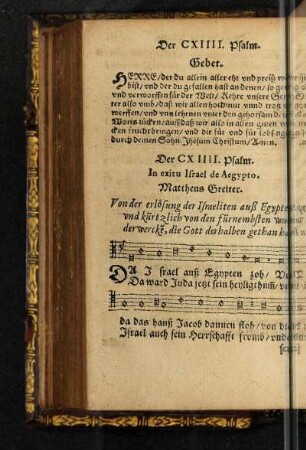 Der CXIIII. Psalm.
Gebet.
HERRE / der du allein aller eht vnd preiß
bist / vnd der du gefallen hast an denen / so
vnd verworffen für der Welt / Kehre vnsere
ter also vmb / daß wir allen hochmut vnnd
werffen / vnd vns lehrnen vnter den gehorsam
Worts tücken / auff daß wir also in allen guten
cken frucht bringen / vnd dir für vnd für lobsingen
durch deinen Sohn Jhesum Christum / Amen.
Der CXIIII. Psalm.
In exitu Israel de Aegypto.
Mattheus Greiter.
Von der erlösung der Isrneliten auß Egypten
vnd kürtzlich von den fürnembsten
der werckē, die Gott derhalben gethan
DA Israel auß Egypten zoh /
Da ward Juda jetzt sein heyligthum /
da das hauß Jacob dannen floh / von
Israel auch sein Herrschafft fromb / vnd